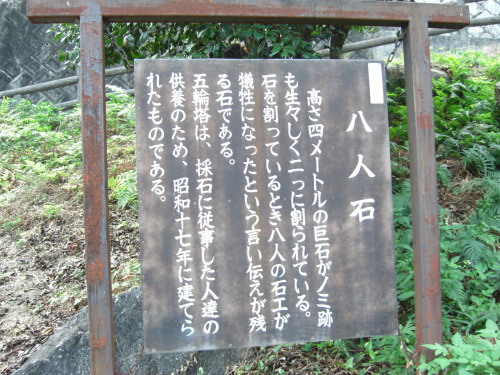 八人石
高さ四メートルの巨石がノミ跡
も生々しく二つに割られている。
石を割っているとき八人の石工が
犠牲になったという言い伝えが残
る石である。
五輪塔は、採石に従事した人達の
供養のため、昭和十七年に建てら
れたものである。